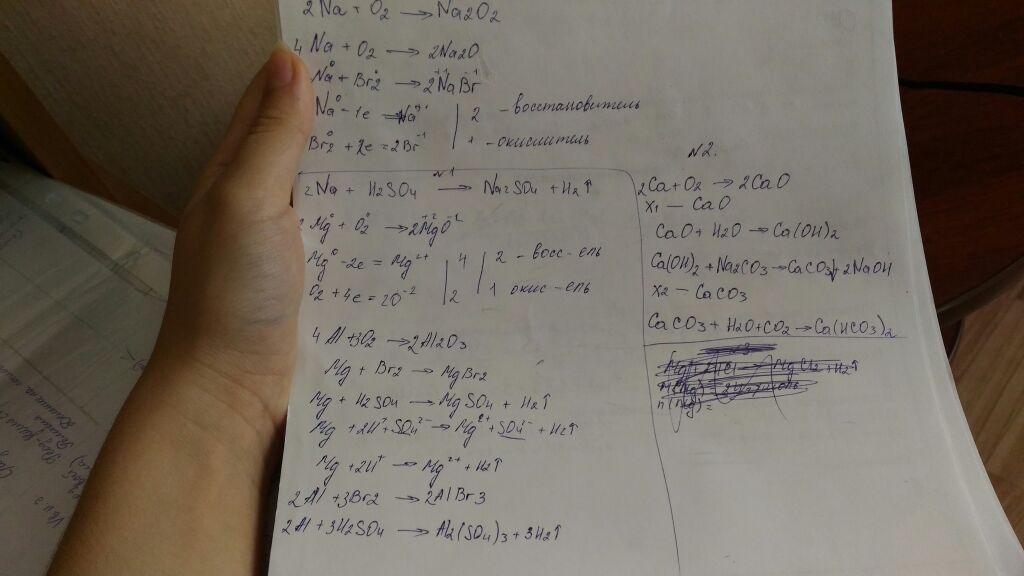 2Na + O2 → Na2O2
4Na + O2 → 2Na2O
Na⁰ + Br2⁰ → 2Na⁺¹Br⁻¹
Na⁰ - 1e = Na⁺¹ | 2 - восстановитель
Br2⁰ + 2e = 2Br⁻¹ | 1 - окислитель
N1
2Na + H2SO4 → Na2SO4 + H2↑
2Mg⁰ + O2⁰ → 2Mg⁺²O⁻²
Mg⁰ - 2e = Mg²⁺ | 4 | 2 - восс-ель
O2 + 4e = 2O⁻² | 2 | 1 окис-ель
4Al + 3O2 → 2Al2O3
Mg + Br2 → MgBr2
Mg + H2SO4 → MgSO4 + H2↑
Mg + 2H⁺ + SO4²⁻ → Mg²⁺ + SO4²⁻ + H2↑
Mg + 2H⁺ → Mg²⁺ + H2↑
2Al + 3Br2 → 2AlBr3
2Al + 3H2SO4 → Al2(SO4)3 + 3H2↑
N2.
2Ca + O2 → 2CaO
X1 — CaO
CaO + H2O → Ca(OH)2
Ca(OH)2 + Na2CO3 → CaCO3↓ + 2NaOH
X2 — CaCO3
CaCO3 + H2O + CO2 → Ca(HCO3)2
Mg + 2HCl → MgCl2 + H2↑
n(Mg) =